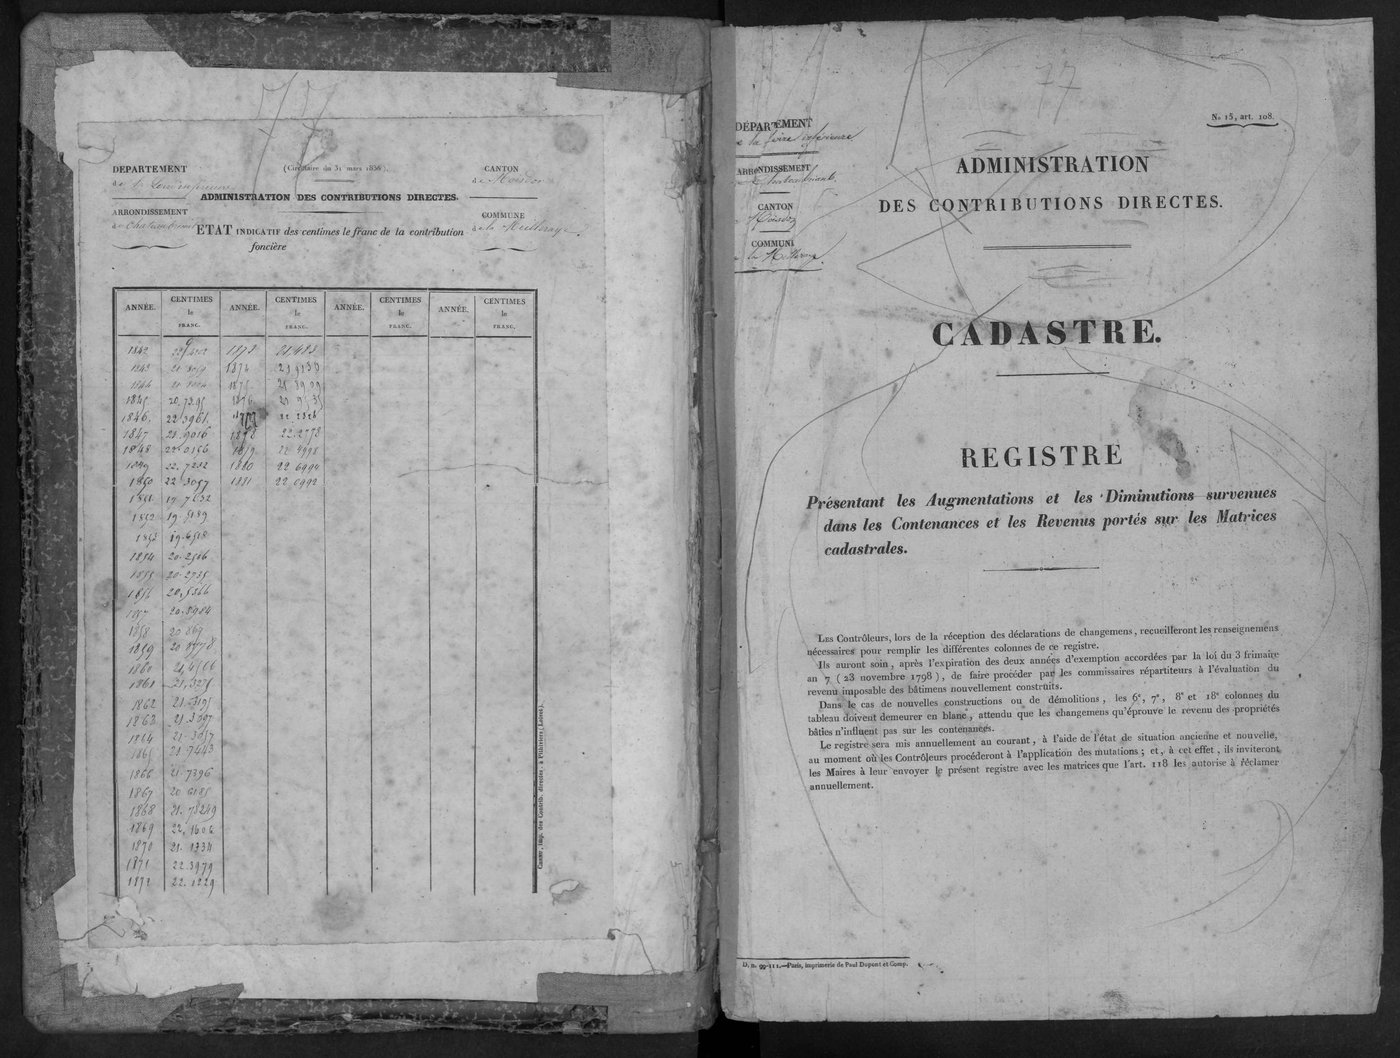 77
DEPARTEMENT
(Circulaire du 31 mars 1836).
CANTON
de Moisdon
ADMINISTRATION DES CONTRIBUTIONS DIRECTES.
ARRONDISSEMENT
de Chateaubriant
COMMUNE
de la Meilleraye
ETAT INDICATIF des centimes le franc de la contribution
foncière
ANNÉE. CENTIMES le FRANC. ANNÉE. CENTIMES le FRANC. ANNÉE. CENTIMES le FRANC. ANNÉE. CENTIMES le FRANC.
1842 1873 21.483
1843 1874
1844 1875
1845 20.7295 1876
1846. 22.3961. 1877
1847 21.9016 1878 22.2778
1848 22.0156 1879 22.4998
1849 22.7232 1880 22.6994
1850 22.3057 1881 22.0992
1851 19.7632
1852 19.5189
1853 19.6518
1854 20.2506
1855 20.2735
1856 20.5366
1857 20.5984
1858 20.869
1859 20.8778
1860 21.4566
1861 21.3275
1862 21.3195
1863 21.3097
1864 21.3057
1865 21.7443
1866 21.7396
1867 20.6185
1868 21.78249
1869 22.1606
1870 21.1734
1871 22.3979
1872 22.1229
Canst, imp. des Contrib. directes, à Pithiviers (Loiret).
77
DÉPARTEMENT
de la Loire inférieure
No 15, art. 108.
ARRONDISSEMENT
de Chateaubriant
CANTON
Moisdon
COMMUNE
de la Meilleraye
ADMINISTRATION
DES CONTRIBUTIONS DIRECTES.
CADASTRE.
REGISTRE
Présentant les Augmentations et les Diminutions survenues
dans les Contenances et les Revenus portés sur les Matrices
cadastrales.
Les Contrôleurs, lors de la réception des déclarations de changemens, recueilleront les renseignemens
nécessaires pour remplir les différentes colonnes de ce registre.
Ils auront soin, après l'expiration des deux années d'exemption accordées par la loi du 3 frimaire
an 7 (23 novembre 1798), de faire procéder par les commissaires répartiteurs à l'évaluation du
revenu imposable des bâtimens nouvellement construits.
Dans le cas de nouvelles constructions ou de démolitions, les 6e, 7e, 8e et 18e colonnes du
tableau doivent demeurer en blanc, attendu que les changemens qu'éprouve le revenu des propriétés
bâties n'influent pas sur les contenances.
Le registre sera mis annuellement au courant, à l'aide de l'état de situation ancienne et nouvelle,
au moment où les Contrôleurs procéderont à l'application des mutations; et, à cet effet, ils inviteront
les Maires à leur envoyer le présent registre avec les matrices que l'art. 118 les autorise à réclamer
annuellement.
D. n. 99-111.—Paris, imprimerie de Paul Dupont et Comp.